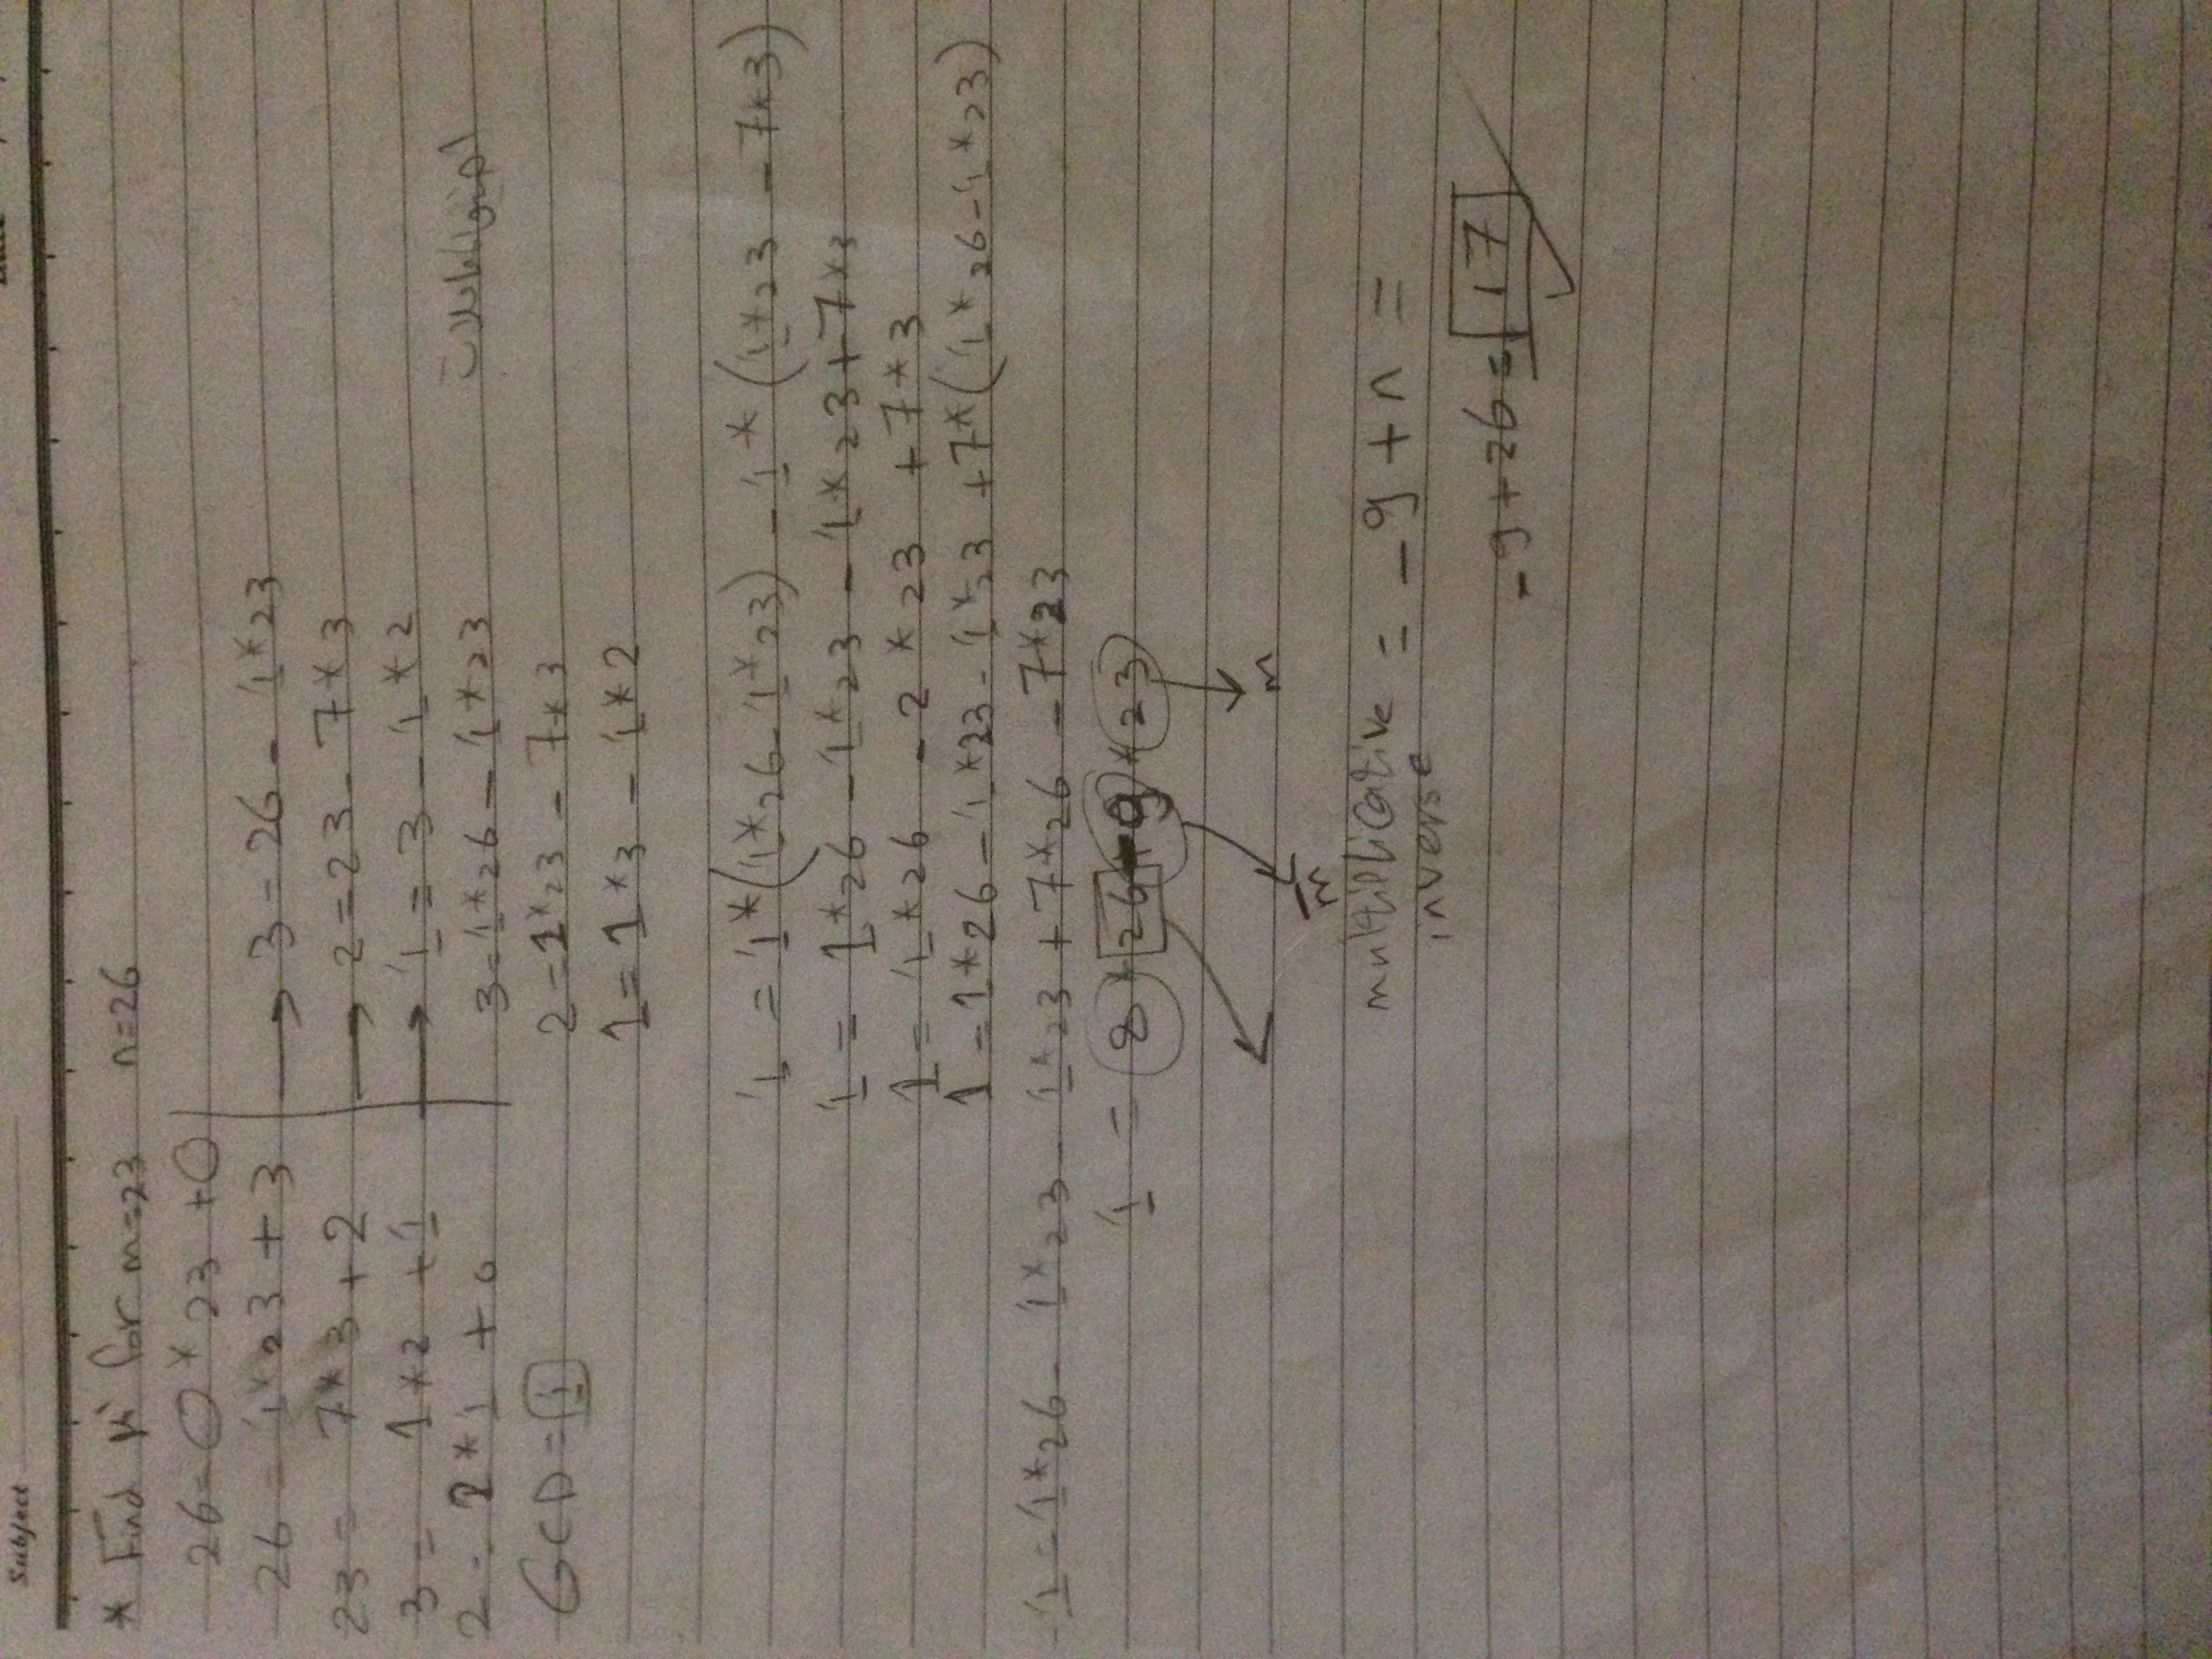 Subject
* Find for m=23 n=26
26=0*23 +0
26 = 1*23 + 3 → 3 = 26 - 1*23
23 = 7*3 + 2 → 2 = 23 - 7*3
3 = 1*2 + 1 → 1 = 3 - 1*2
2 = 2*1 + 0 3=1*26 - 1*23
GCD = 1 2 = 1*23 - 7*3
1 = 1*3 - 1*2
1 = 1*(1*26 - 1*23) - 1*(1*23 - 7*3)
1 = 1*26 - 1*23 - 1*23 + 7*3
1 = 1*26 - 2*23 + 7*3
1 = 1*26 - 1*23 - 1*23 + 7*(1*26 - 1*23)
1 = 1*26 - 1*23 - 1*23 + 7*26 - 7*23
1 = 8*26 -9*23
m
m̄
multiplicative = -9 + n =
inverse
-9 + 26 = 17